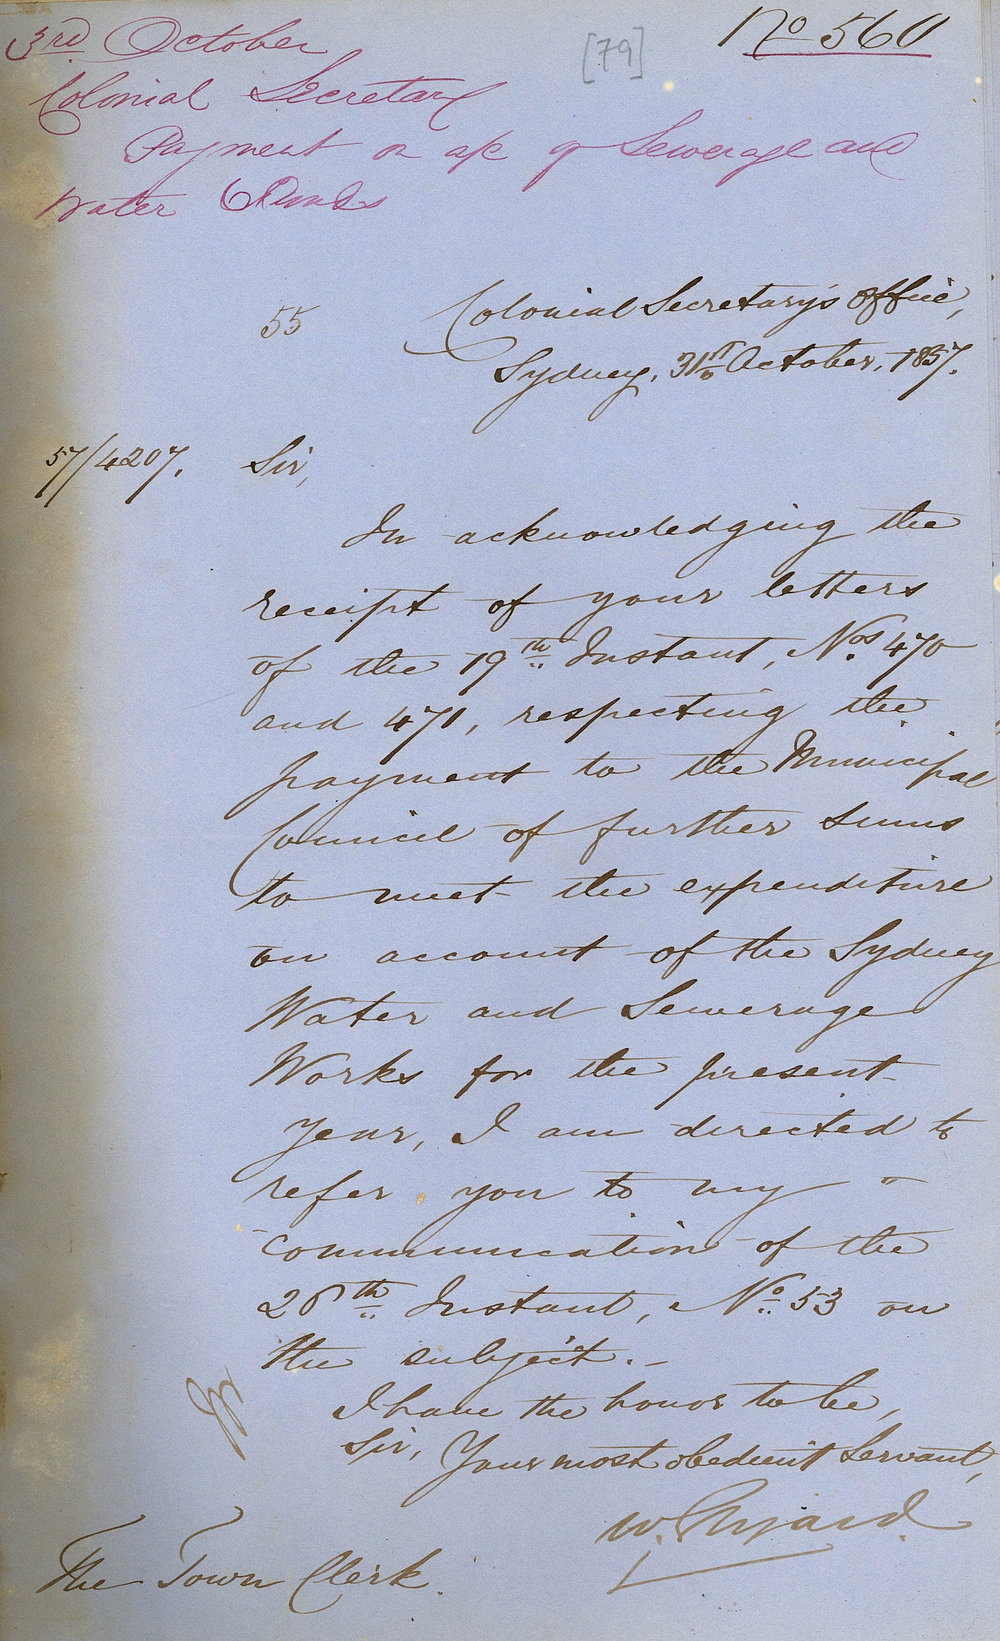 3rd October
[79]
No 560
Colonial Secretary
Payment on a/c of Sewerage and
Water
55
Colonial Secretary's Office,
Sydney, 31st October, 1857.
57/4207.
Sir,
In acknowledging the
receipt of your letters
of the 19th Instant, Nos. 470
and 471, respecting the
payment to the Municipal
Council of further sums
to meet the expenditure
on account of the Sydney
Water and Sewerage
Works for the present
Year, I am directed to
refer you to my
communication of the
28th Instant, No. 53 on
the subject.-
I have the honor to be,
Sir, Your most obedient Servant,
W.
The Town Clerk.